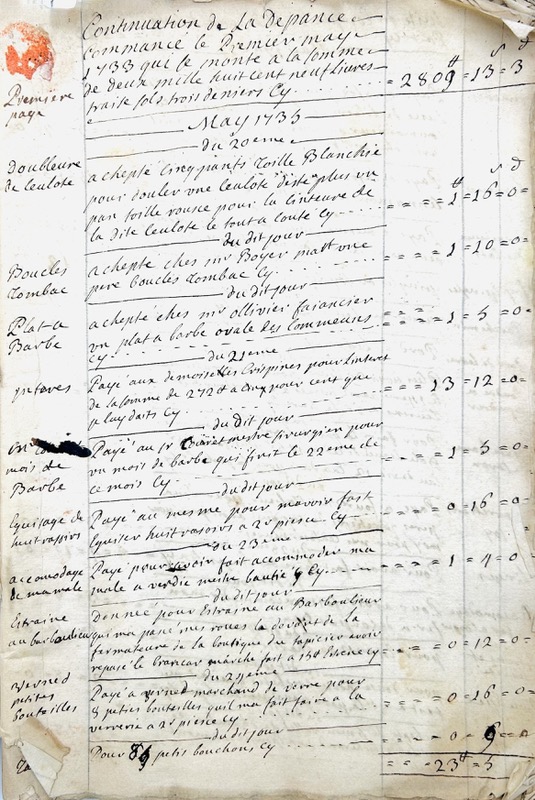 Continuation de La depance
commancé le Premier may
1733 que se monte a la somme
de deux mille huit cent neuf Livres
traise sols trois deniers Cy = 2809# = 13s = 3d
Premiere
page
May 1733
du 20eme
doubleure
de culote
achepté cinq pants Toille Blanchie
pour doubler une culote d'este plus un
pan toille rousse pour la cinteure de
la dite culote le tout a couté Cy 1# = 16s = 0d
du dit jour
Boucles
Tombac
achepté ches mr Boyer une
pere boucles Tombac Cy 1 = 10 = 0
du dit jour
Plat a
Barbe
achepté ches mr ollivier faiancier
un plat a barbe ovale des communs
Cy 1 = 5 = 0
du 21eme
ynteres
Payé aux demoiselles Crispines pour linteret
de la somme de 272# a cinq pour cent que
Cy 13 = 12 = 0
du dit jour
mois de
Barbe
Payé au sr mestre sirurgien pour
un mois de barbe qui finit le 22eme de
ce mois Cy 1 = 5 = 0
du dit jour
Eguisage de
huit rasoirs
Payé au mesme pour mavoir fait
Eguiser huit rasoirs a 2s piesce Cy 0 = 16 = 0
du 23eme
accomodage
de ma male
Payé pour avoir fait accommoder ma
male a Cy 1 = 4 = 0
du dit jour
Estraine
au barboulieur
donné pour Estraine au Barboulieur
qui ma pané mes roues le devant de la
fermateure de la boutique du tapicier
Cy 0 = 12 = 0
du 24eme
Verned
petites
bouteilles
Payé a verned marchand de verre pour
8 petites bouteilles quil ma fait faire a la
verrerie a 2s piesce Cy 0 = 16 = 0
du dit jour
Pour petis bouchons Cy 0 = 9 = 0
23# = 5